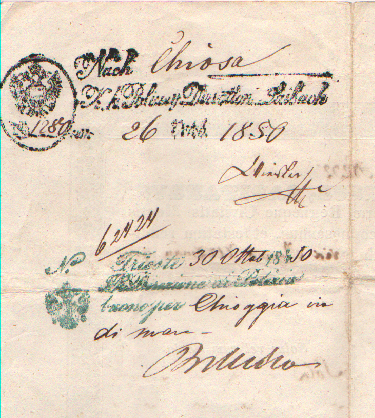 Nach Chiosa
K. k. Polizey Direction Laibach
1280
26 Octob 1850
6242
N.
Trieste 30 Ottob 1850
I. R. Direzione di Polizia
buono per Chioggia via
di mare